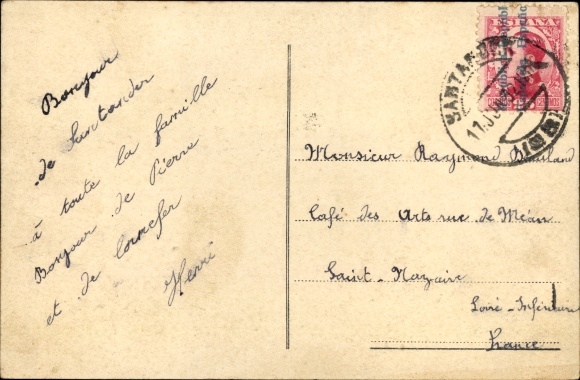 Bonjour
de Santander
à toute la famille
Bonjour de Pierre
et de
Henri
ESPAÑA
SANTANDER
11 JU
Monsieur Raymond
Café des Arts rue de Méan
Saint-Nazaire
Loire-Inférieure
France